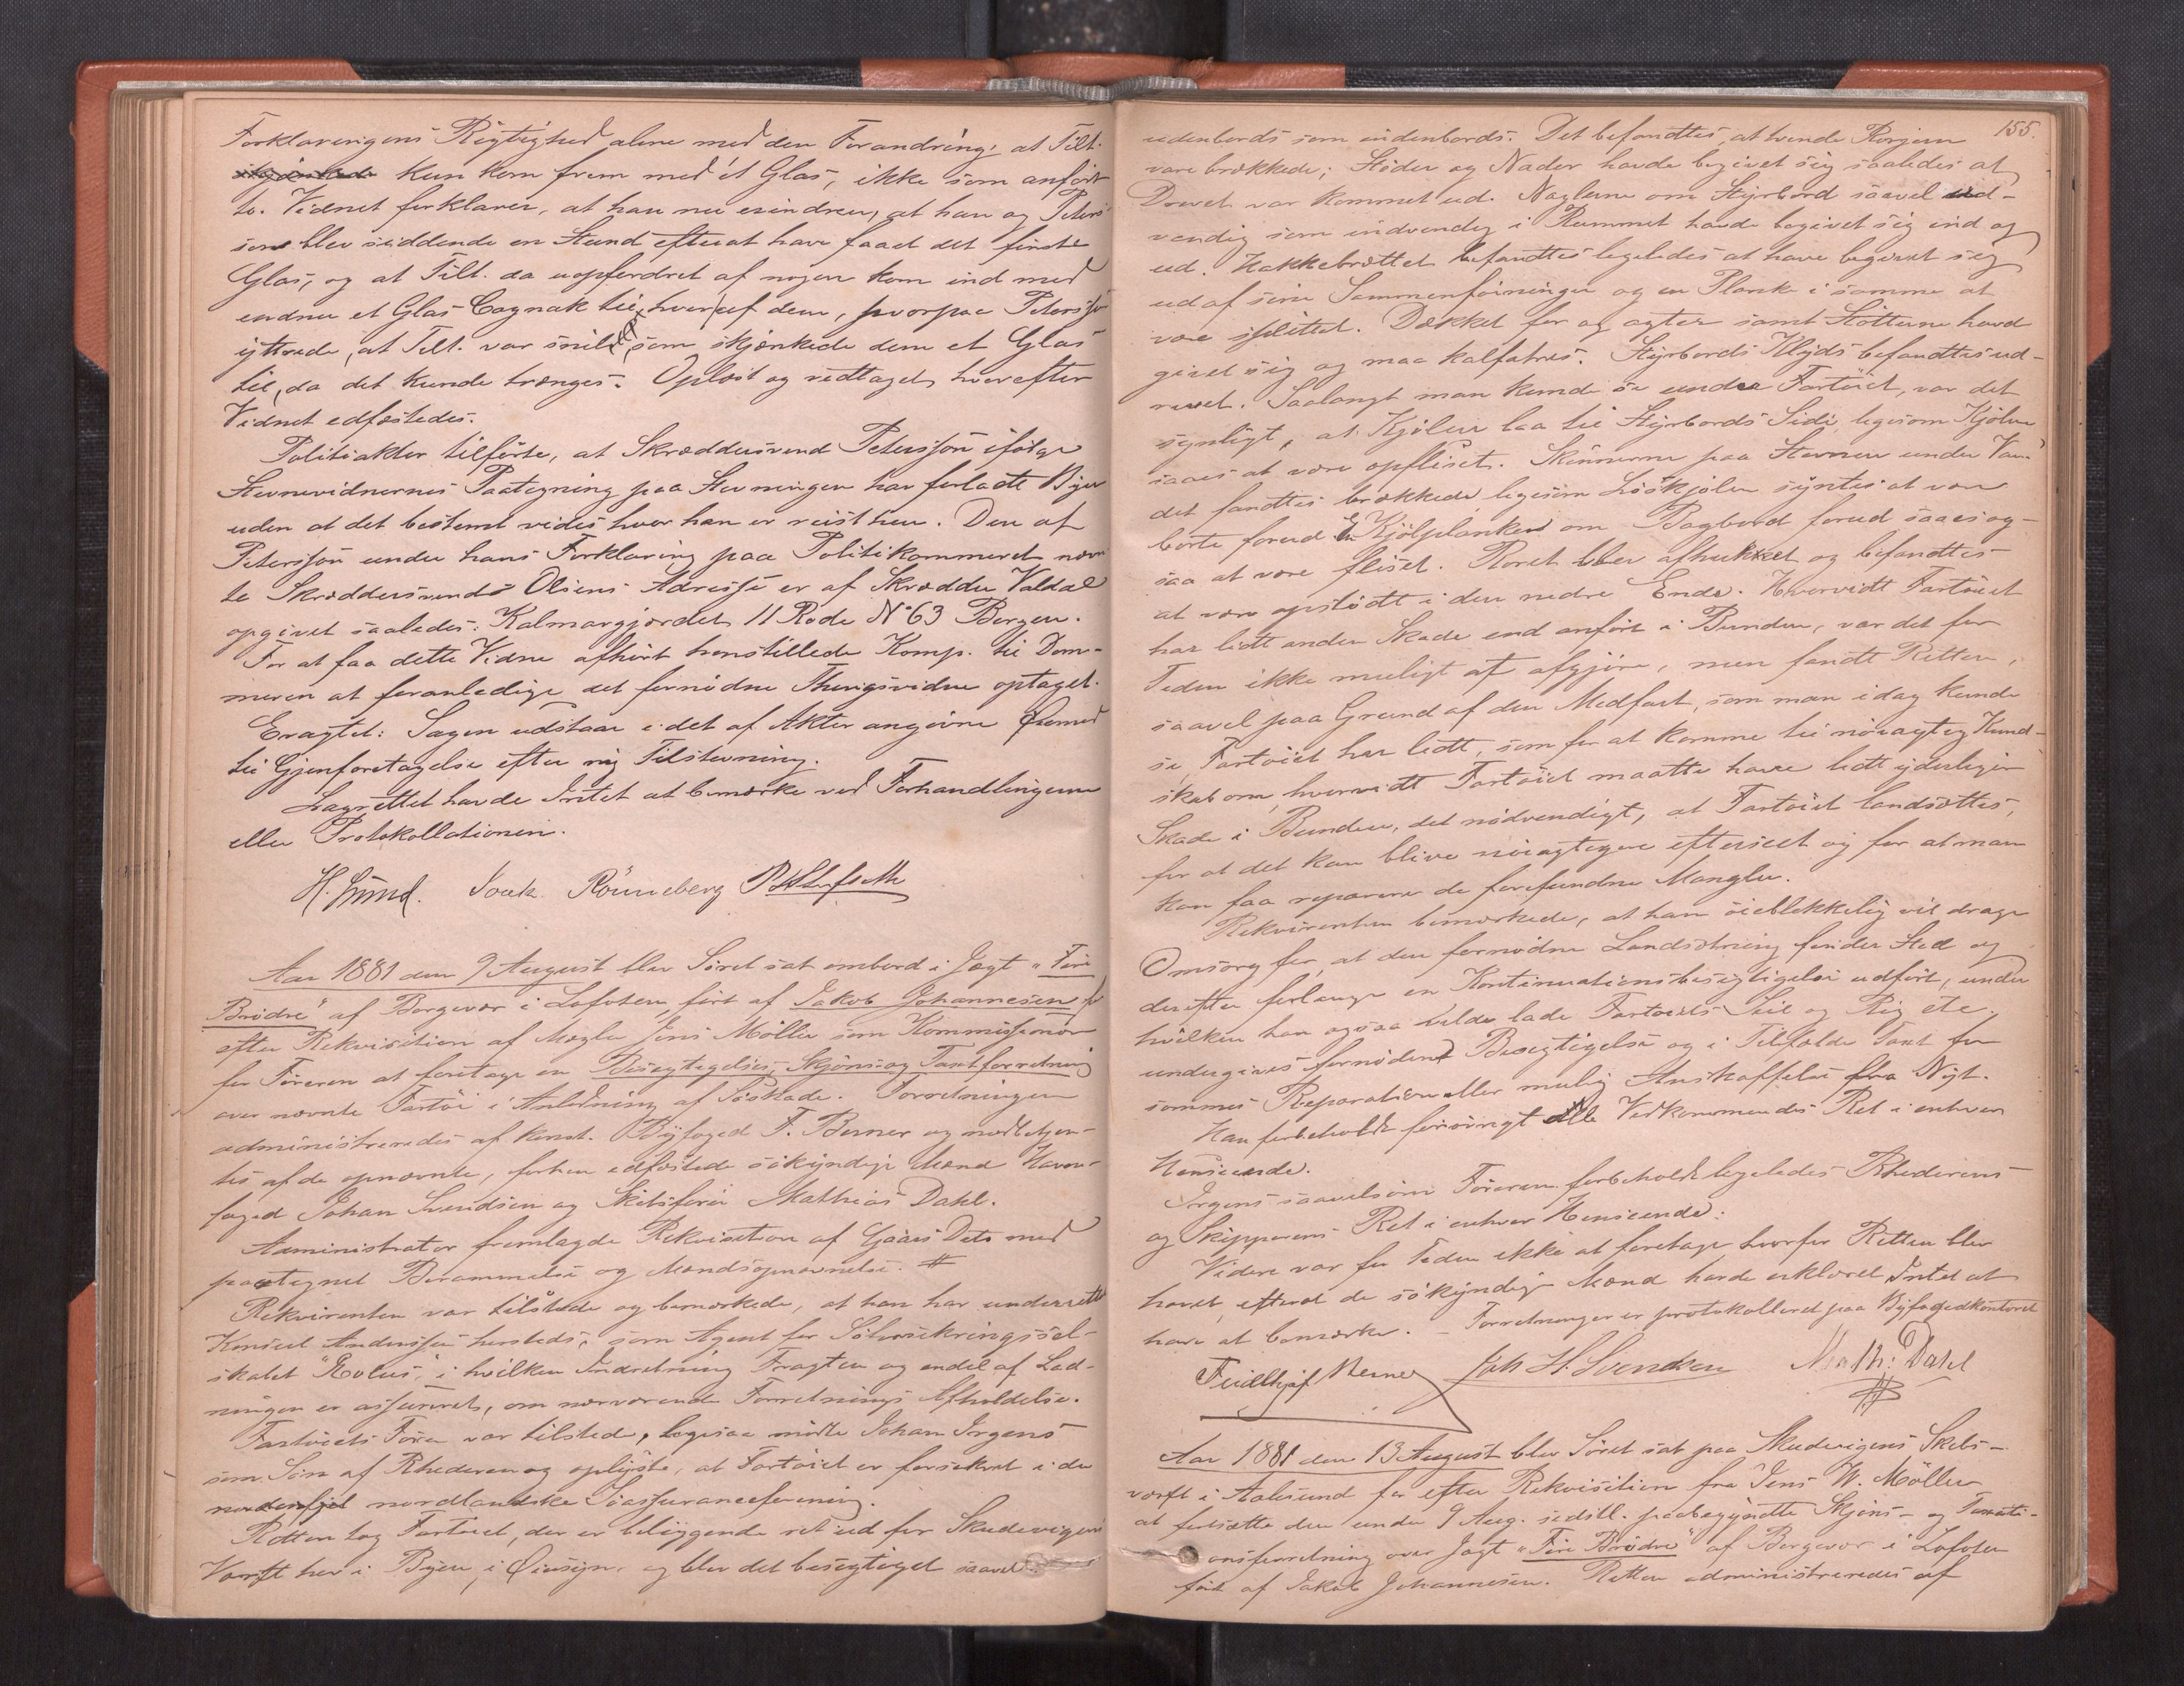 Forklaringens Rigtighed alene med den Forandring, at Tilt.
kun kom frem med ét Glas, ikke som anført
to. Vidnet forklarer, at han nu erindrer, at han og Peters-
son blev siddende en Stund efterat have faaet det første
Glas, og at Tilt. da uopfordret af nogen kom ind med
endnu et Glas Cognak til hver af dem, hvorpaa Petersson
yttrede, at Tilt. var snild, som skjænkede dem et Glas
til, da det kunde trænges. Oplæst og vedtaget, hvorefter
Vidnet edfæstedes.
Politiaktor tilførte, at Skræddersvend Petersson ifølge
Stevnevidnernes Paategning paa Stevningen har forladt Byen
uden at det bestemt vides hvor han er reist hen. Den af
Petersson under hans Forklaring paa Politikammeret nævn-
te Skræddersvend Olsens Adresse er af Skrædder Valdal
opgivet saaledes: Kalmargjordet 11 Rode No 63 Bergen.
For at faa dette Vidne afhørt henstillede Komp. til Dom-
meren at foranledige det fornødne Thingsvidne optaget.
Eragtet: Sagen udstaar i det af Aktor angivne Øiemed
til Gjenforetagelse efter ny Tilstevning.
Lagrettet havde Intet at bemærke ved Forhandlingerne
eller Protokollationen.
H. Lund. Rönneberg
Aar 1881 den 9 August blev Søret sat ombord i Jagt "Fire
Brødre" af Borgevær i Lofoten, ført af Jakob Johannesen for
efter Rekvisition af Mægler Jens Møller som Kommissionær
for Føreren at foretage en Besigtigelses, Skjøns og Taxtforretning
over nævnte Fartøi i Anledning af Søskade. Forretningen
administreredes af konst. Byfoged F. Berner og medbetjen-
tes af de opnævnte, forhen edfæstede søkyndige Mænd Havne-
foged Johan Svendsen og Skibsfører Mathias Dahl.
Administrator fremlagde Rekvisition af Gaars Dato med
paategnet Berammelse og Mandsopnævnelse. #
Rekvirenten var tilstede og bemærkede, at han har underrettet
Konsul Anderssen hersteds, som Agent for Søforsikringssel-
skabet "Æolus", i hvilken Indretning Fragten og endel af Lad-
ningen er assureret, om nærværende Forretnings Afholdelse.
Fartøiets Fører var tilstede, ligesaa mødte Johan Irgens
som Søn af Rhederen og oplyste, at Fartøiet er forsikret i den
nordenfjel nordlandske Søassuranceforening.
Retten tog Fartøiet, der er beliggende ret ud for Skudevigens
Værft her i Byen, i Øiesyn, og blev det besigtiget saavel
155.
udenbords som indenbords. Det befandtes, at tvende Røsjern
vare brækkede; Støder og Nader havde begivet sig saaledes at
Drevet var kommet ud. Naglerne om Styrbord saavel ud-
vendig som indvendig i Rummet havde begivet sig ind og
ud. Hakkebrættet befandtes ligeledes at have begivet sig
ud af sine Sammenføininger og en Planke i samme at
være splittet. Dækket for og agter samt Støtterne havde
givet sig og maa kalfatres. Styrbords Klyds befandtes ud-
revet. Saalangt man kunde se under Fartøiet, var det
synligt, at Kjølen laa til Styrbords Side, ligesom Kjølen
saaes at være opfliset. Skinnerne paa Stevnen under Van-
det fandtes brækkede, ligesom Løskjølen syntes at være
borte forud. En Kjølplanke om Bagbord forud saaes og-
saa at være fliset. Roret blev afhukket og befandtes
at være opstødt i den nedre Ende. Hvorvidt Fartøiet
har lidt anden Skade end anført i Bunden, var det for
Tiden ikke muligt at afgjøre, men fandt Retten,
saavel paa Grund af den Medfart, som man idag kunde
se, Fartøiet har lidt, som for at komme til nøiagtig Kund-
skab om, hvorvidt Fartøiet maatte have lidt yderligere
Skade i Bunden, det nødvendigt, at Fartøiet landsættes,
for at det kan blive nøiagtigere efterseet og for at man
kan faa reparere de forefundne Mangler.
Rekvirenten bemærkede, at han øieblikkelig vil drage
Omsorg for, at den fornødne Landsætning finder Sted og
derefter forlange en Kontinuationsbesigtigelse udført, under
hvilken han ogsaa vilde lade Fartøiets Seil og Rig etc.
undergives fornøden Besigtigelse og i Tilfælde Taxt for
sammes Reparation eller mulig Anskaffelse fra Nyt.
Han forbeholdt forøvrigt alle Vedkommendes Ret i enhver
Henseende.
Irgens saavelsom Føreren forbeholdt ligeledes Rhederiens
og Skipperens Ret i enhver Henseende.
Videre var for Tiden ikke at foretage, hvorfor Retten blev
hævet, efterat de søkyndige Mænd havde erklæret Intet at
have at bemærke. – Forretningen er protokolleret paa Byfogedkontoret
Fridthjof Berner Joh H. Svendsen Math: Dahl
#
Aar 1881 den 13 August blev Søret sat paa Skudevigens Skibs-
værft i Aalesund for efter Rekvisition fra Jens W. Møller
at fortsætte den under 9 Aug. sidstl. paabegyndte Skjøns- og Taxati-
onsforretning over Jagt "Fire Brødre" af Borgevær i Lofoten
ført af Jakob Johannesen. Retten administreredes af